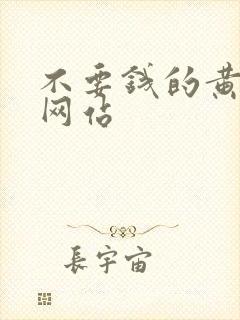 不要钱的黄
网站
長宇宙